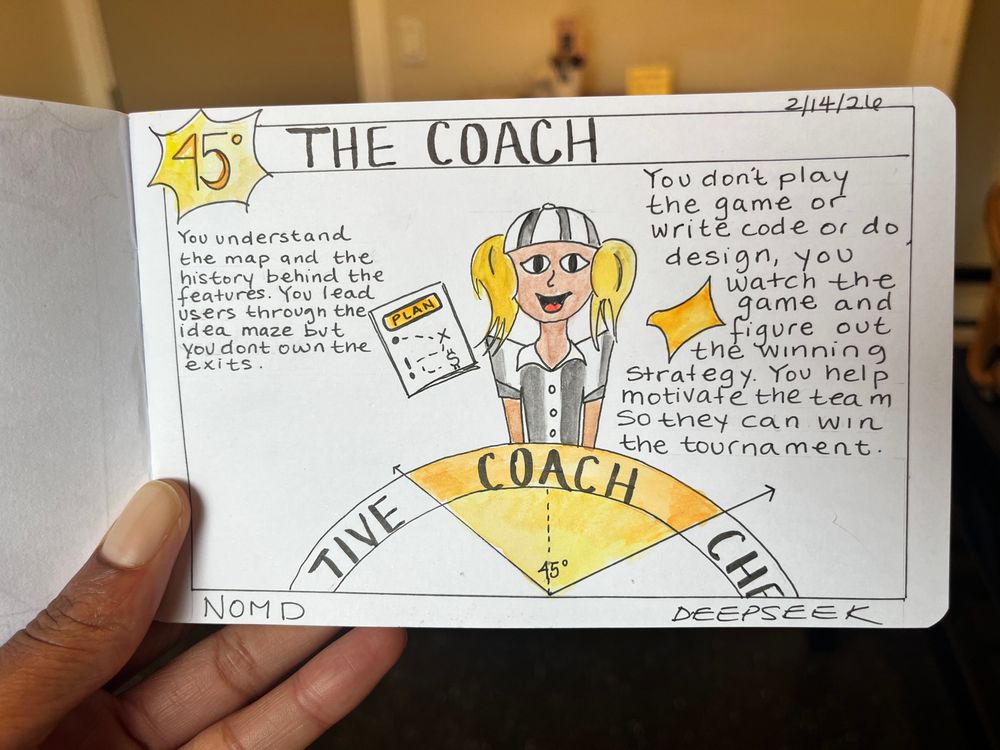 2/14/26
45°
THE COACH
You understand
the map and the
history behind the
features. You lead
users through the
idea maze but
you dont own the
exits.
PLAN
X
$
You don't play
the game or
write code or do
design, you
watch the
game and
figure out
the winning
strategy. You help
motivate the team
so they can win
the tournament.
TIVE
COACH
CHE
45°
NOMD
DEEPSEEK